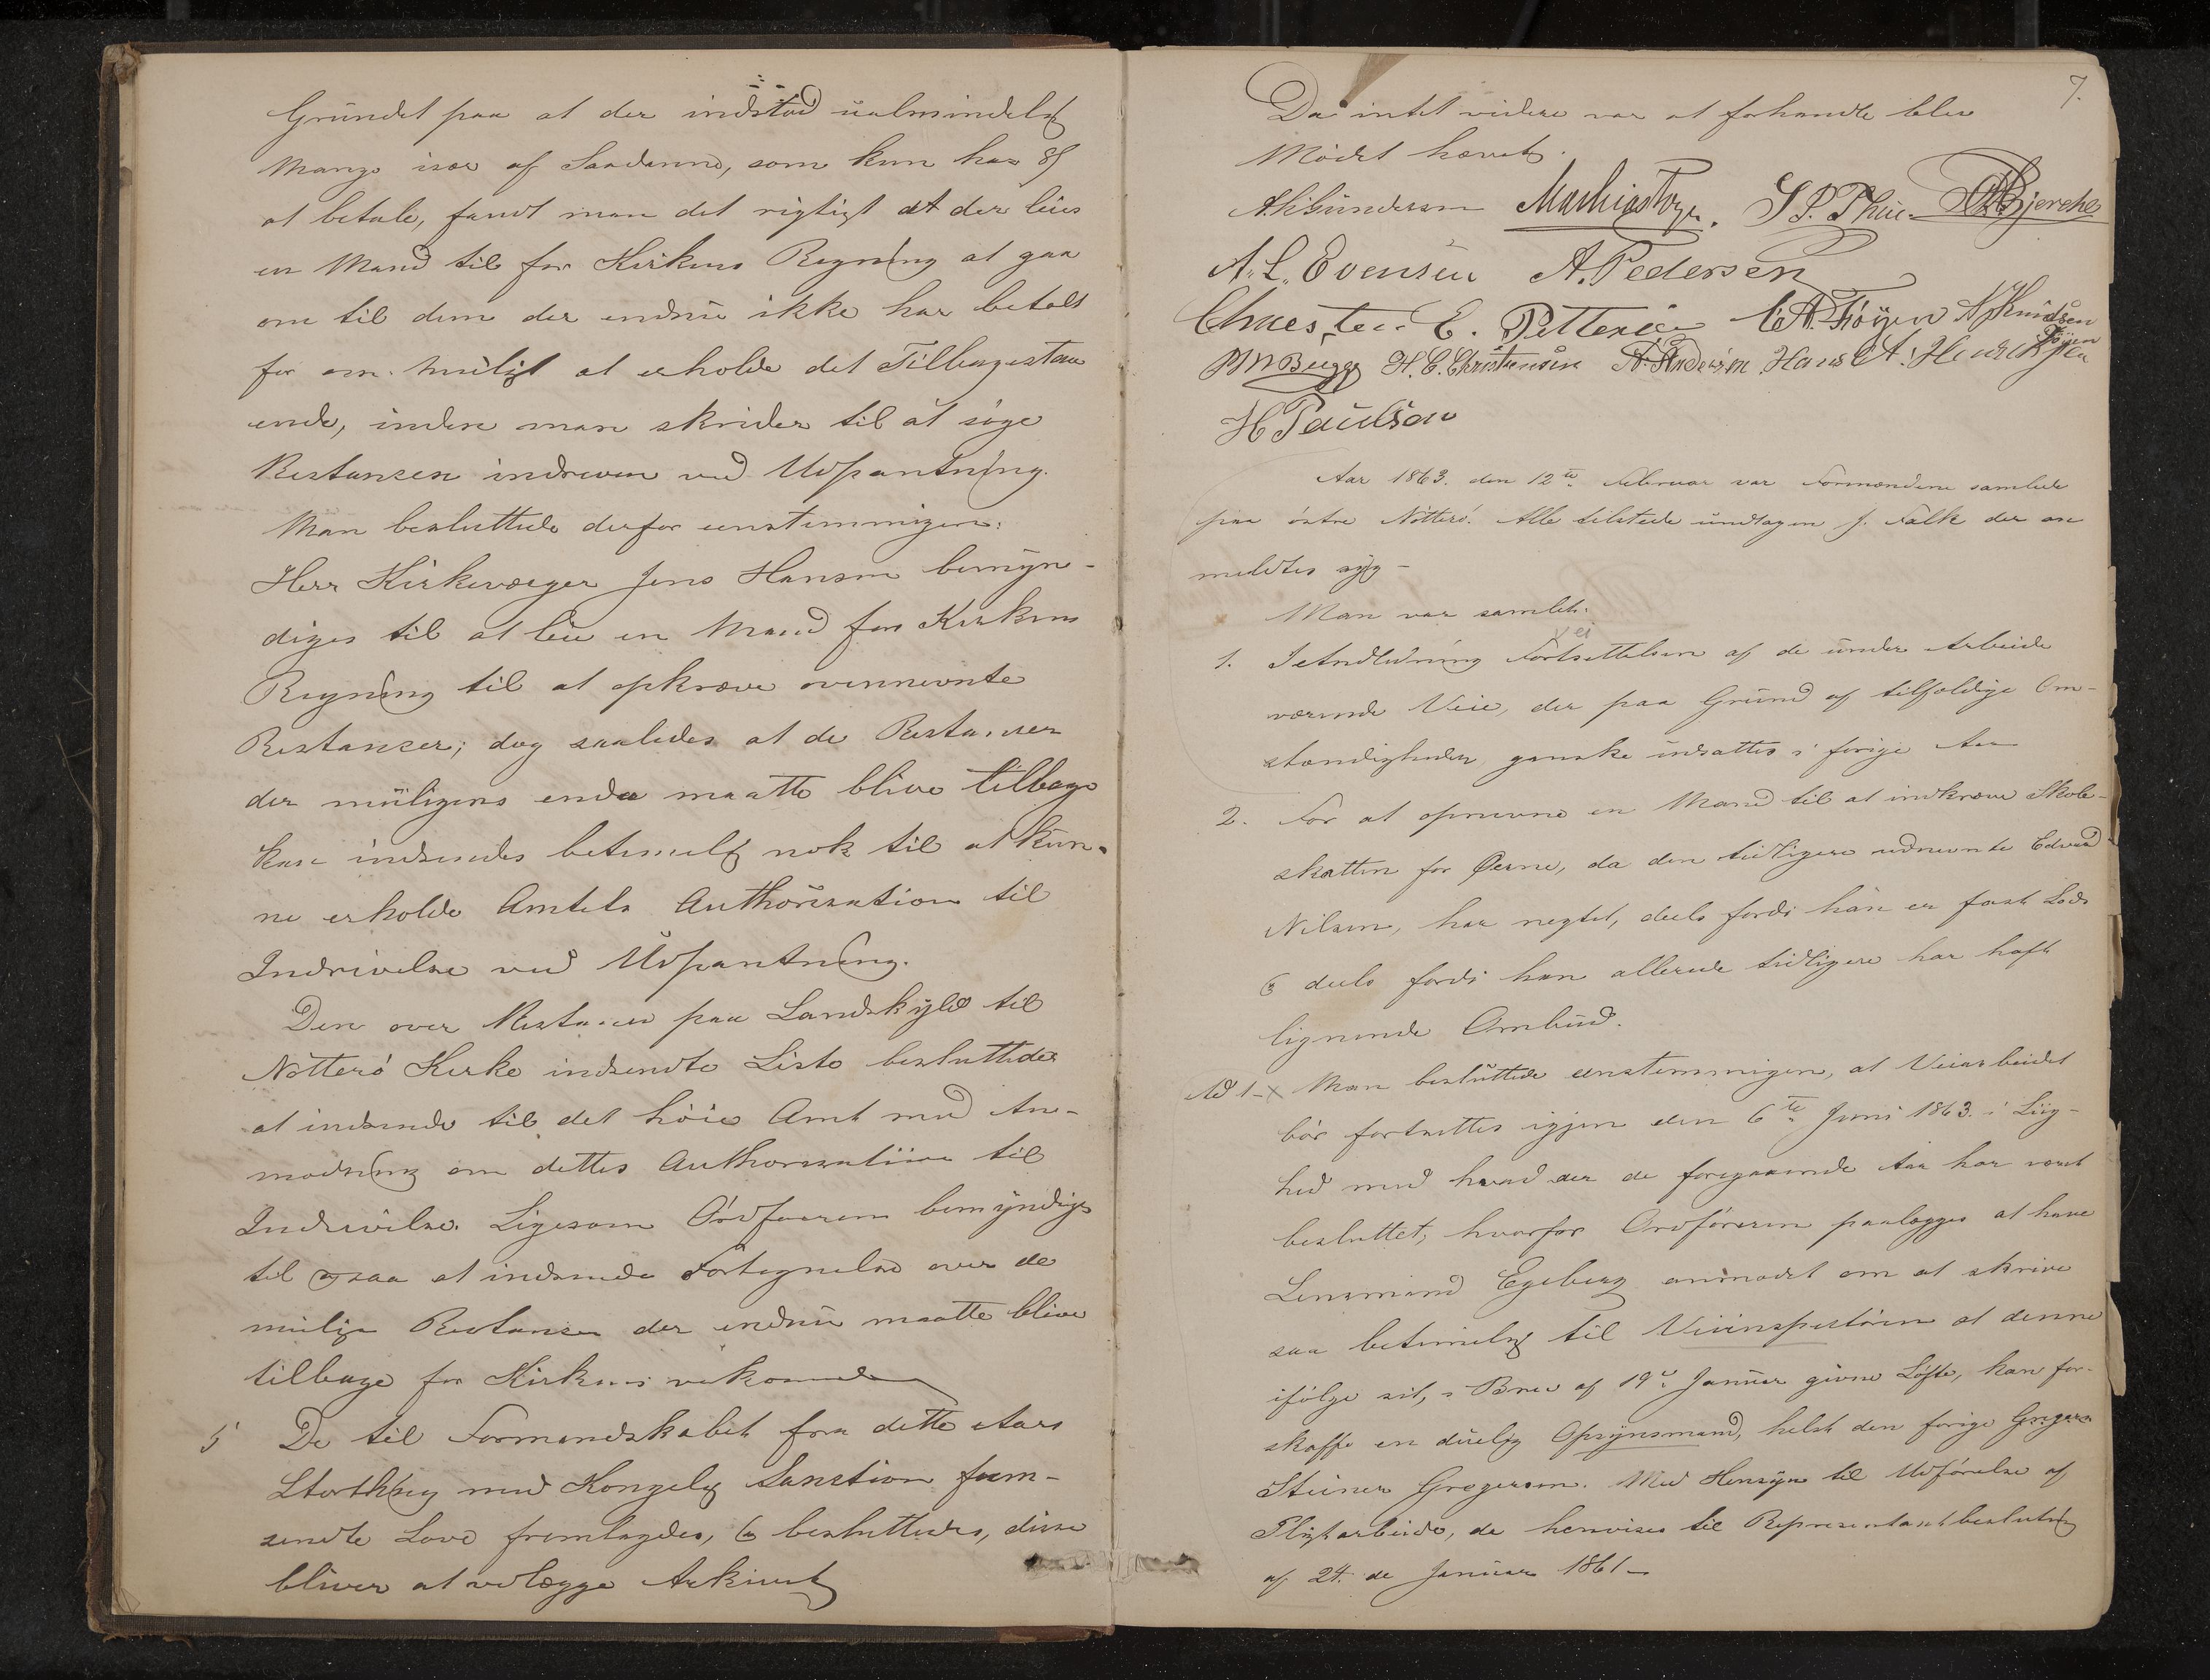 Grundet paa at der indstod ualmindelig
Mange især af Saadanne, som kun har 8 ſ
at betale, fandt man det rigtigt at der leies
en Mand til for Kirkens Regning at gaa
om til dem der endnu ikke har betalt
for om muligt at erholde det Tilbagestaa
ende, inden man skrider til at søge
Restansen indreven ved Udpantning.
Man besluttede derfor eenstemmigen:
Herr Kirkeværger Jens Hansen bemyn-
diges til at leie en Mand for Kirkens
Regning til at opkræve ovennevnte
Restanser; dog saaledes at de Restanser
der muligens enda maatte blive tilbage
kan indsendes betimelig nok til at kun-
ne erholde Amtets Authorisation til
Indrivelse ved Udpantning.
Den over Restanser paa Landskyld til
Nøtterø Kirke indsendte Liste besluttedes
at indsende til det høie Amt med An-
modning om dettes Authorisation til
Indrivelse. Ligesom Ordføreren bemyndiges
til ogsaa at indsende Fortegnelse over de
mulige Restanser der endnu maatte blive
tilbage for Kirkens vedkommende
5 De til Formandskabet fra dette Aars
Storthing med Kongelig Sanction frem-
sendte Love fremlagdes, og besluttedes, disse
bliver at vedlægge Arkivet
7.
Da intet videre var at forhandle blev
Mødet hævet.
A. H. Gundersen Mathias Foyn. S P. Thue. Bjerche
A. L. Evensen A. Pedersen
E. Pettersen C A. Føyen N J Knudsen
Føyen
Bugge H. C. Christensen A. Andersen Hans A. Hendriksen
H Paulsen
Aar 1863. den 12te Februar var Formændene samlede
paa østre Nøtterø. Alle tilstede undtagen J. Falk der an
meldtes syg –
Man var samlet.
vei
1. I Andledning Fortsettelsen af de under Arbeide
værende Veie, der paa Grund af tilfældige Om-
stændigheder, ganske indsattes i forige Aar
2. For at opnevne en Mand til at indkræve Skole-
skatten for Øerne, da den tidligere udnevnte Edvard
Nilsen, har negtet, deels fordi han er fast Lods
og deels fordi han allerede tidligere har haft
lignende Ombud.
Ad 1 – x Man besluttede eenstemmigen, at Veiarbeidet
bør fortsettes igjen den 6te Juni 1863. i Liig-
hed med hvad der de foregaaende Aar har været
besluttet; hvorfor Ordføreren paalægges at have
Lensmand Egeberg anmodet om at skrive
saa betimelig til Veiinspectøren at denne
ifølge sit, i Brev af 19de Januar givne Løfte, kan for-
skaffe en duelig Opsynsmand, helst den forige Gregers
Steiner Gregersen. Med Hensyn til Udførelse af
Pligtarbeide, da henvises til Representantbeslutning
af 24. de Januar 1861 –